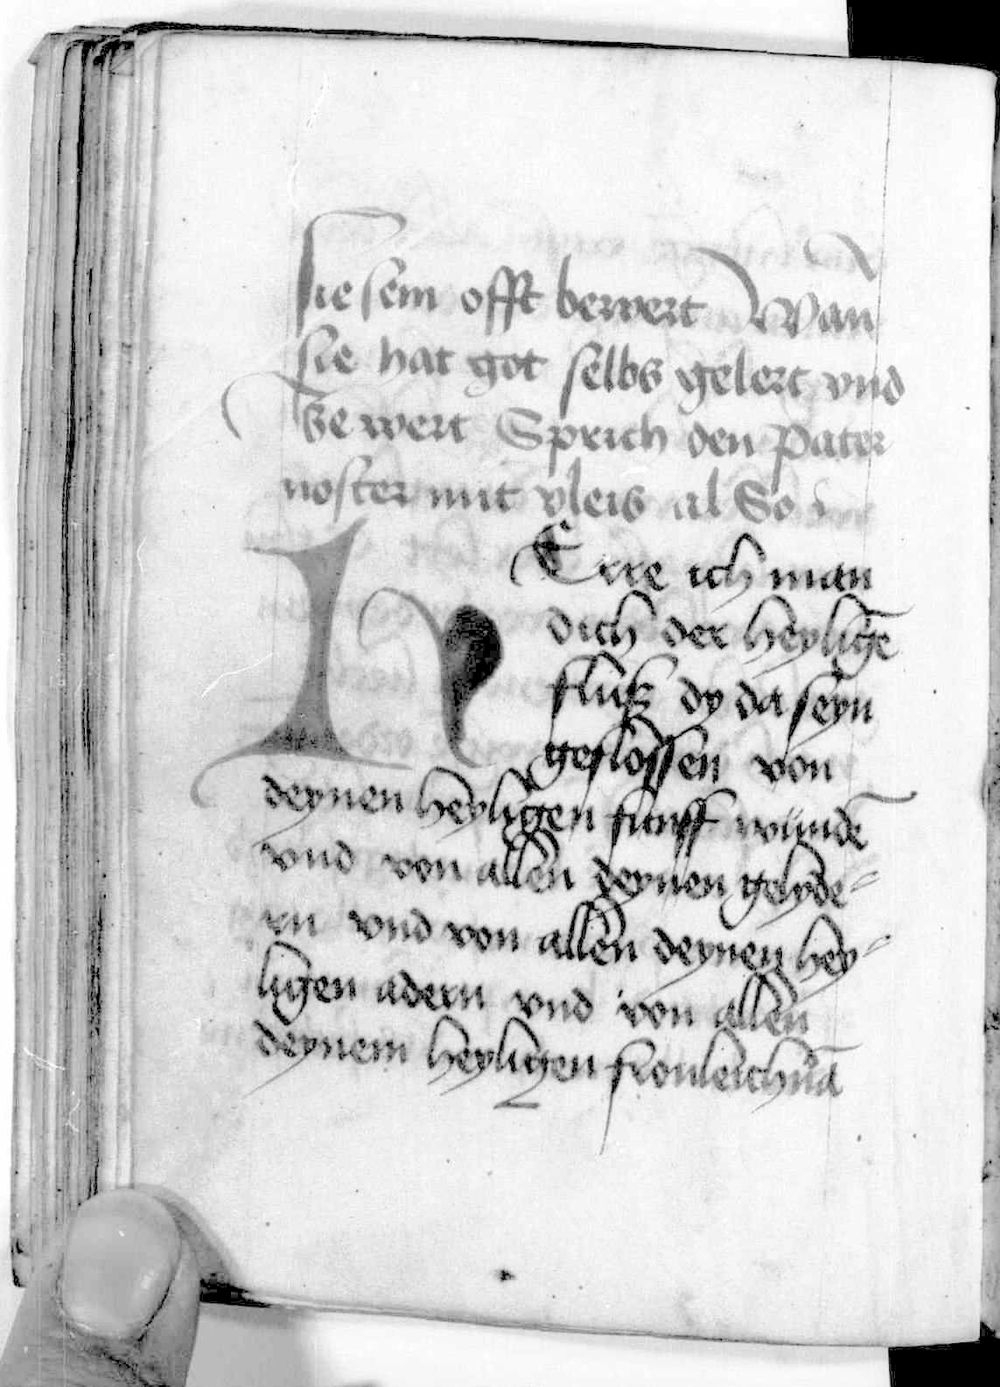 sie sein offt bewert Wan
sie hat got selbs gelert vnd
ge wert Sprich den Pater
noster mit vleis al So
HErre ich man
dich der heyligē
fluß dy da seyn
geflossen von
deynen heyligen funff wundē
vnd von allen deynen gelyde-
rn vnd von allen deynen hey-
ligen adern vnd von allen
deynem heyligen fronleichnā